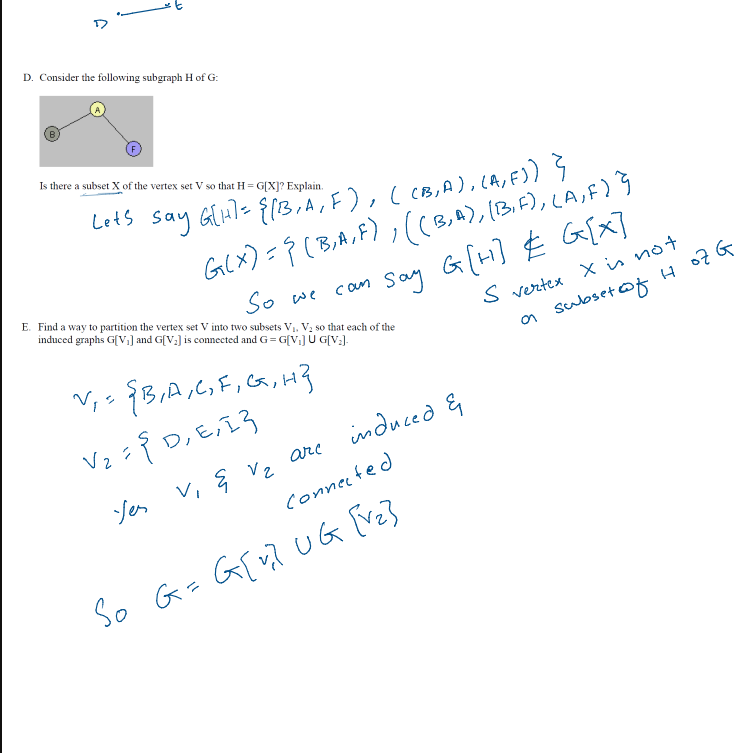 D E
D. Consider the following subgraph H of G:
A
B
F
Is there a subset X of the vertex set V so that H = G[X]? Explain.
Lets say G[H] = {(B,A,F), ((B,A),(A,F))}
G(X) = {(B,A,F), ((B,A),(B,F),(A,F)}
So we can say G[H] ∉ G[X]
S vertex X is not
a subset of H of G
E. Find a way to partition the vertex set V into two subsets V₁, V₂ so that each of the
induced graphs G[V₁] and G[V₂] is connected and G = G[V₁] U G[V₂].
V₁ = {B,A,C,F,G,H}
V₂ = {D,E,I}
Yes V₁ & V₂ are induced &
connected
So G = G[V₁] U G[V₂]